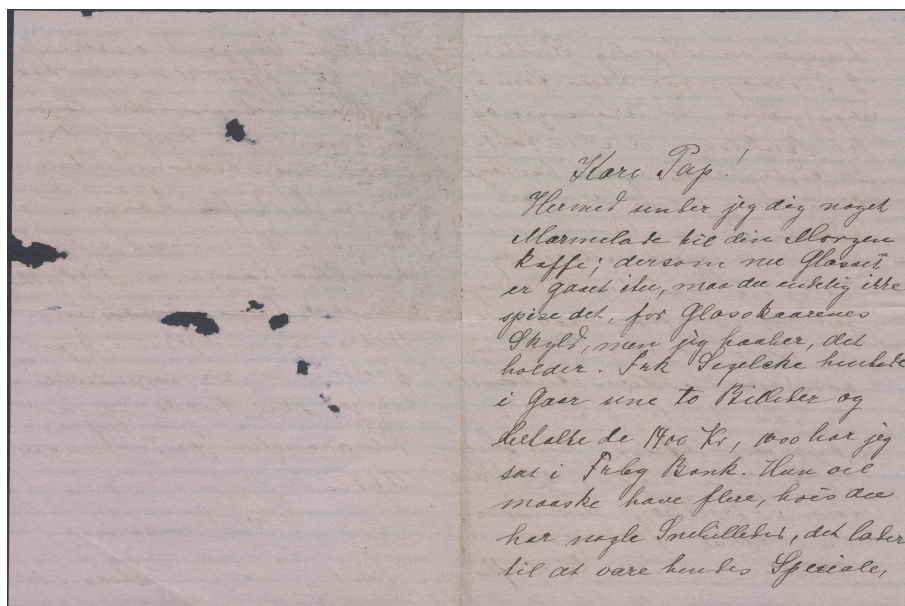 Kære Pap!
Hermed sender jeg dig noget
Marmelade til din Morgen
kaffe; dersom nu Glasset
er gaaet itu, maa du endelig ikke
spise det, for Glasskaarenes
Skyld, men jeg haaber, det
holder. Frk Segelcke hentede
i Gaar sine to Billeder og
betalte de 1400 Kr, 1000 har jeg
sat i Frbg Bank. Hun vil
maaske have flere, hvis du
har nogle Snebilleder, det lader
til at være hendes Speciale,